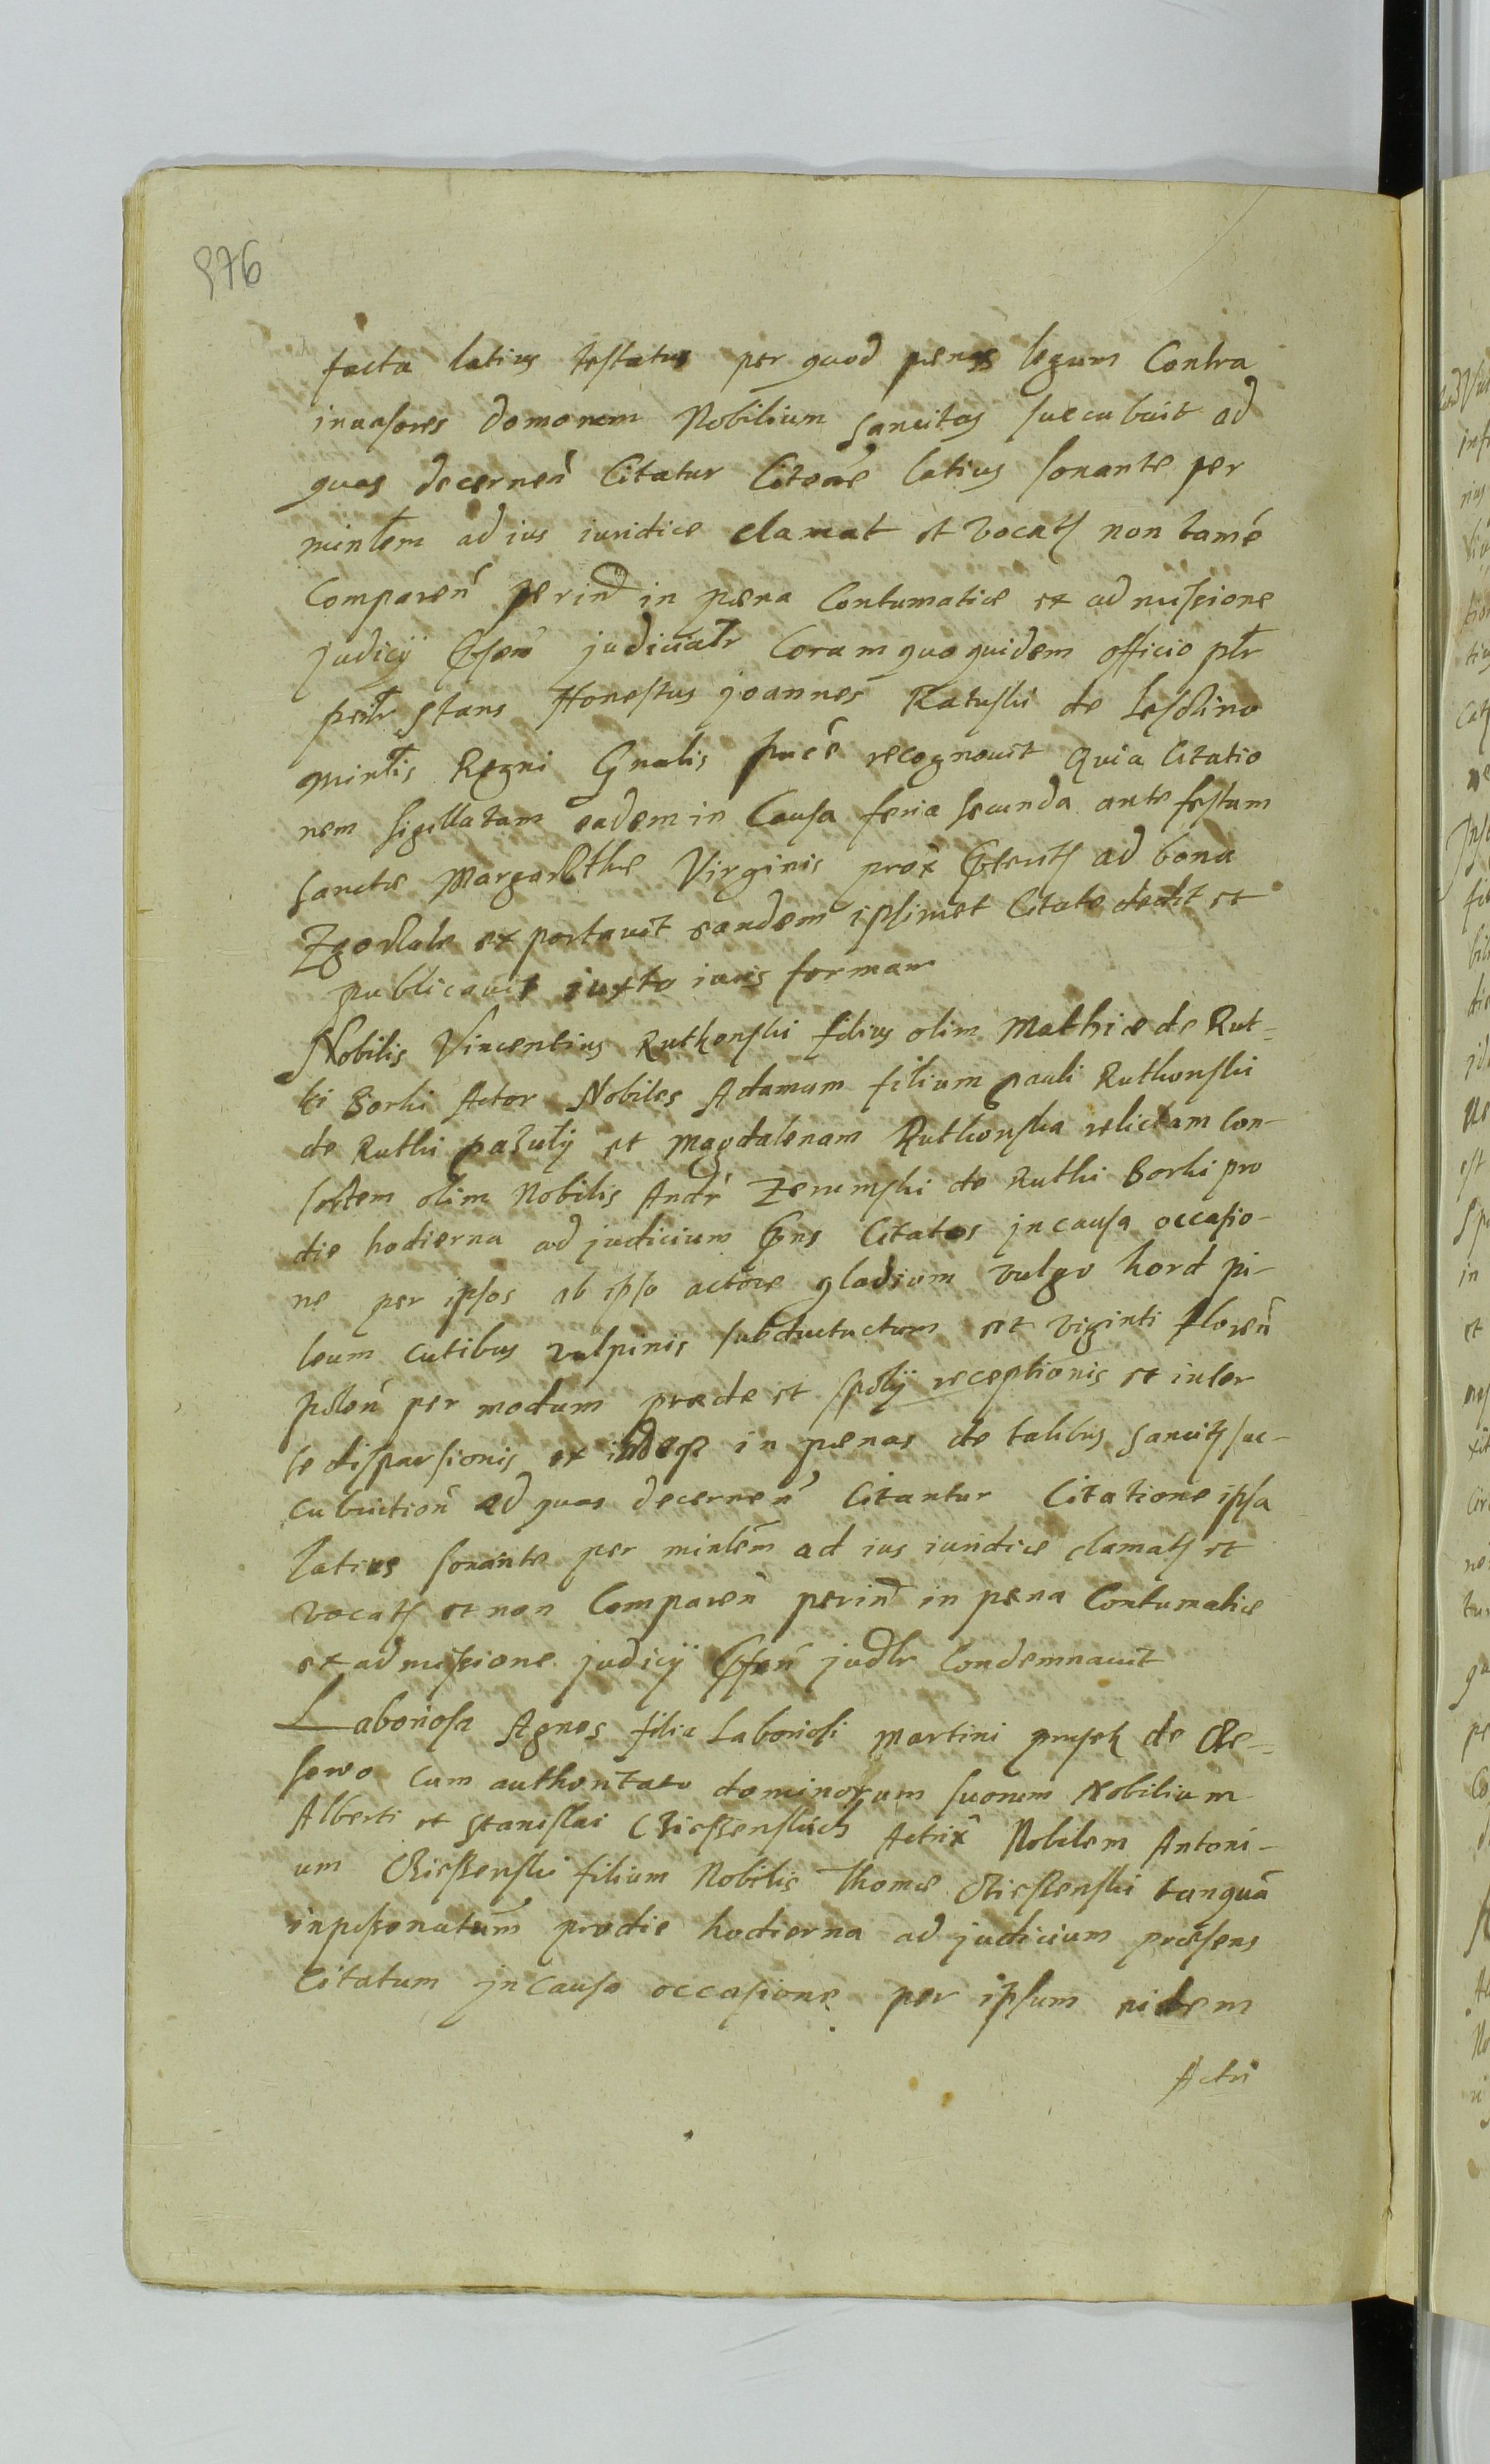 976
facta latius testatus per quod penas legum Contra
inuasores domorum Nobilium sancitas succubuit ad
quas decernen Citatur Citatione latius sonante per
minlem ad ius iuridice clamat et vocats non tame
Comparen perind in pena Contumatiæ ex admissione
judicij psen judicialr Coram quo quidem officio plr
psnlr stans Honestus joannes Ratuski de
minlis Regni Gnalis recognouit Quia Citatio
nem sigillatam eadem in Causa feria secunda ante festum
sanctæ Margarethæ Virginis prox ad bona
exportauit eandem ipsimet Citato dedit et
publicauit juxta iuris formam
Nobilis Vincentius Ruthkowski filius olim Mathiæ de Rut-
ki Borki Actor Nobiles Adamum filium pauli Rutkowski
de Rutki et Magdalenam Rutkowska relictam Con-
sortem olim Nobilis Andr Zeromski de Rutki Borki pro
die hodierna ad judicium pns Citatos in causa occasio-
ne per ipsos ab ipso actore gladium vulgo kord pi-
leum cutibus vulpinis subductuctum et viginti floren
polon per modum prædæ et spolij receptionis et inter
se dispersionis ex indeqz in penas de talibus sancits suc-
cubuition ad quas decernen Citantur Citatione ipsa
latius sonante per minlem ad ius iuridice clamats et
vocats et non Comparen perind in pena Contumatiæ
ex admissione judicij psen judlr Condemnauit
Laboriosa Agnes filia Laboriosi Martini de
sewo cum authoritate dominorum suorum Nobilium
Alberti et Stanislai Actrix Nobilem Antoni-
um filium Nobilis Thomæ tanquā
inpossonatum pro die hodierna ad judicium præsens
Citatum in Causa occasione per ipsum eidem
Actri